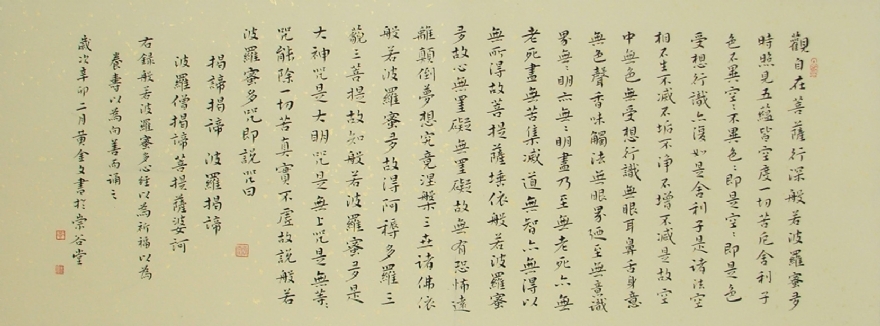 觀自在菩薩行深般若波羅蜜多
時照見五蘊皆空度一切苦厄舍利子
色不異空〻不異色〻即是空〻即是色
受想行識亦復如是舍利子是諸法空
相不生不滅不垢不淨不增不減是故空
中無色無受想行識無眼耳鼻舌身意
無色聲香味觸法無眼界迺至無意識
界無〻明亦無〻明盡乃至無老死亦無
老死盡無苦集滅道無智亦無得以
無所得故菩提薩埵依般若波羅蜜
多故心無罣礙無罣礙故無有恐怖遠
離顛倒夢想究竟涅槃三世諸佛依
般若波羅蜜多故得阿耨多羅三
藐三菩提故知般若波羅蜜多是
大神咒是大明咒是無上咒是無等〻
咒能除一切苦真實不虛故說般若
波羅蜜多咒即說咒曰
揭諦揭諦 波羅揭諦
波羅僧揭諦菩提薩婆訶
右錄般若波羅蜜多心經以為祈福以為
養壽以為向善而誦之
歲次辛卯二月黃金文書於崇谷堂